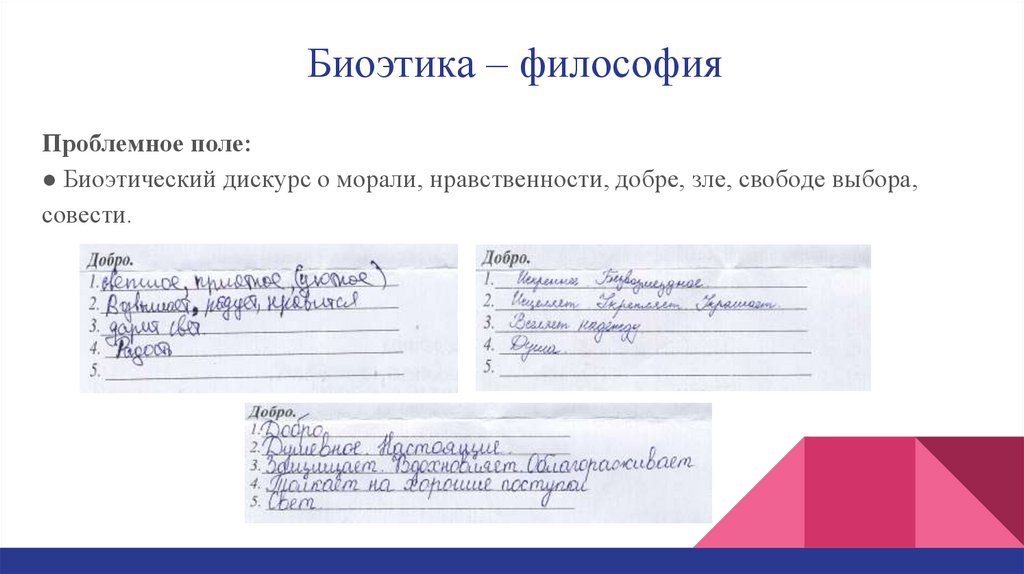 Биоэтика – философия
Проблемное поле:
● Биоэтический дискурс о морали, нравственности, добре, зле, свободе выбора,
совести.
Добро.
1. теплое, приятное, (уютное)
2. Возвышает, радует, нравится
3. дарит свет
4. Радость
5.
Добро.
1. Искреннее Безвозмездное.
2. Исцеляет Укрепляет Украшает.
3. Вселяет надежду
4. Душа.
5.
Добро.
1. Добро
2. Душевное. Настоящие.
3. Защищает. Вдохновляет. Облагораживает
4. Толкает на хорошие поступки
5. Свет